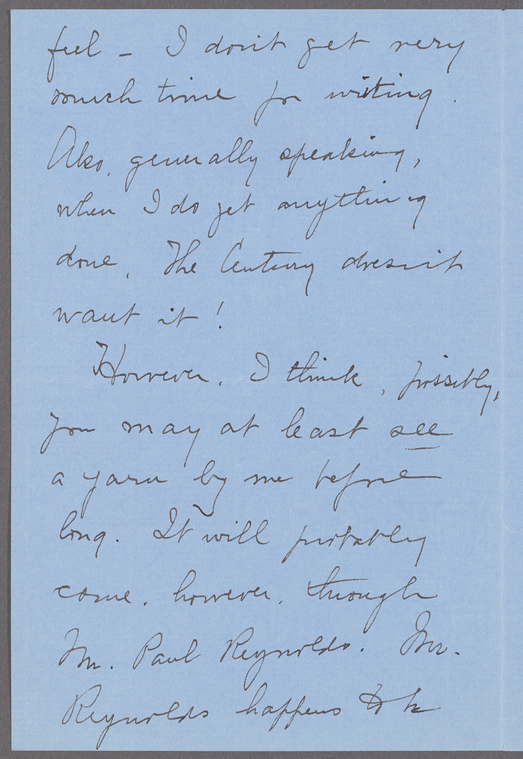 feel – I don't get very
much time for writing.
Also, generally speaking,
when I do get anything
done, The Century doesn't
want it!
However, I think, possibly,
you may at least see
a yarn by me before
long. It will probably
come, however, through
Mr. Paul Reynolds. Mr.
Reynolds happens to be